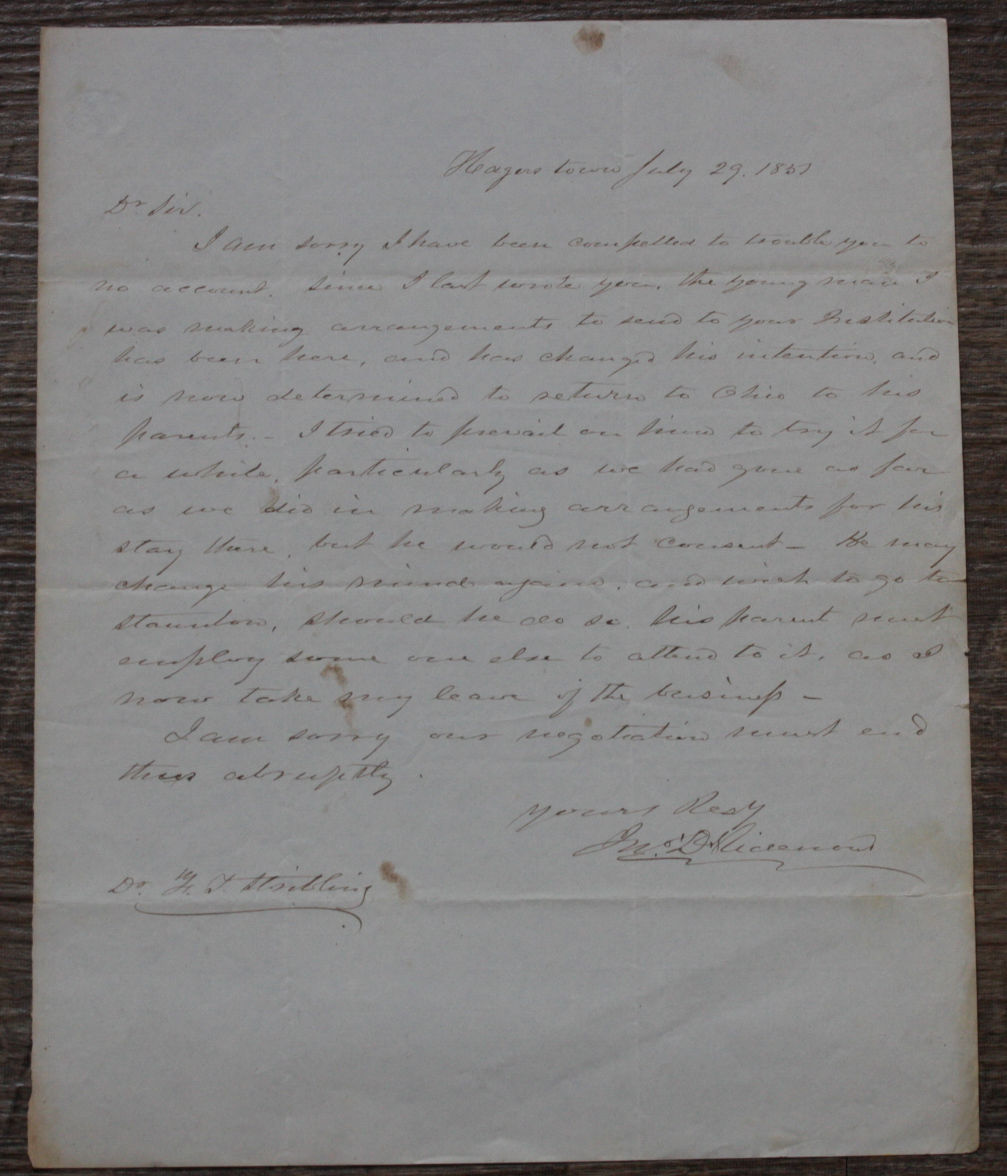 Hagerstown July 29. 1851
Dr Sir.
I am sorry I have been compelled to trouble you to
no account. Since I last wrote you, the young man I
was making arrangements to send to your Institution
has been here, and has changed his intention, and
is now determined to return to Ohio to his
parents. - I tried to prevail on him to try it for
a while, particularly as we had gone as far
as we did in making arrangements for his
stay there, but he would not consent - He may
change his mind again, and wish to go to
Staunton, should he do so, his parent must
employ some one else to attend to it, as I
now take my leave of the business -
I am sorry our negotiation must end
thus abruptly.
Yours Resy
Jno. D
Dr. F. T. Stribling